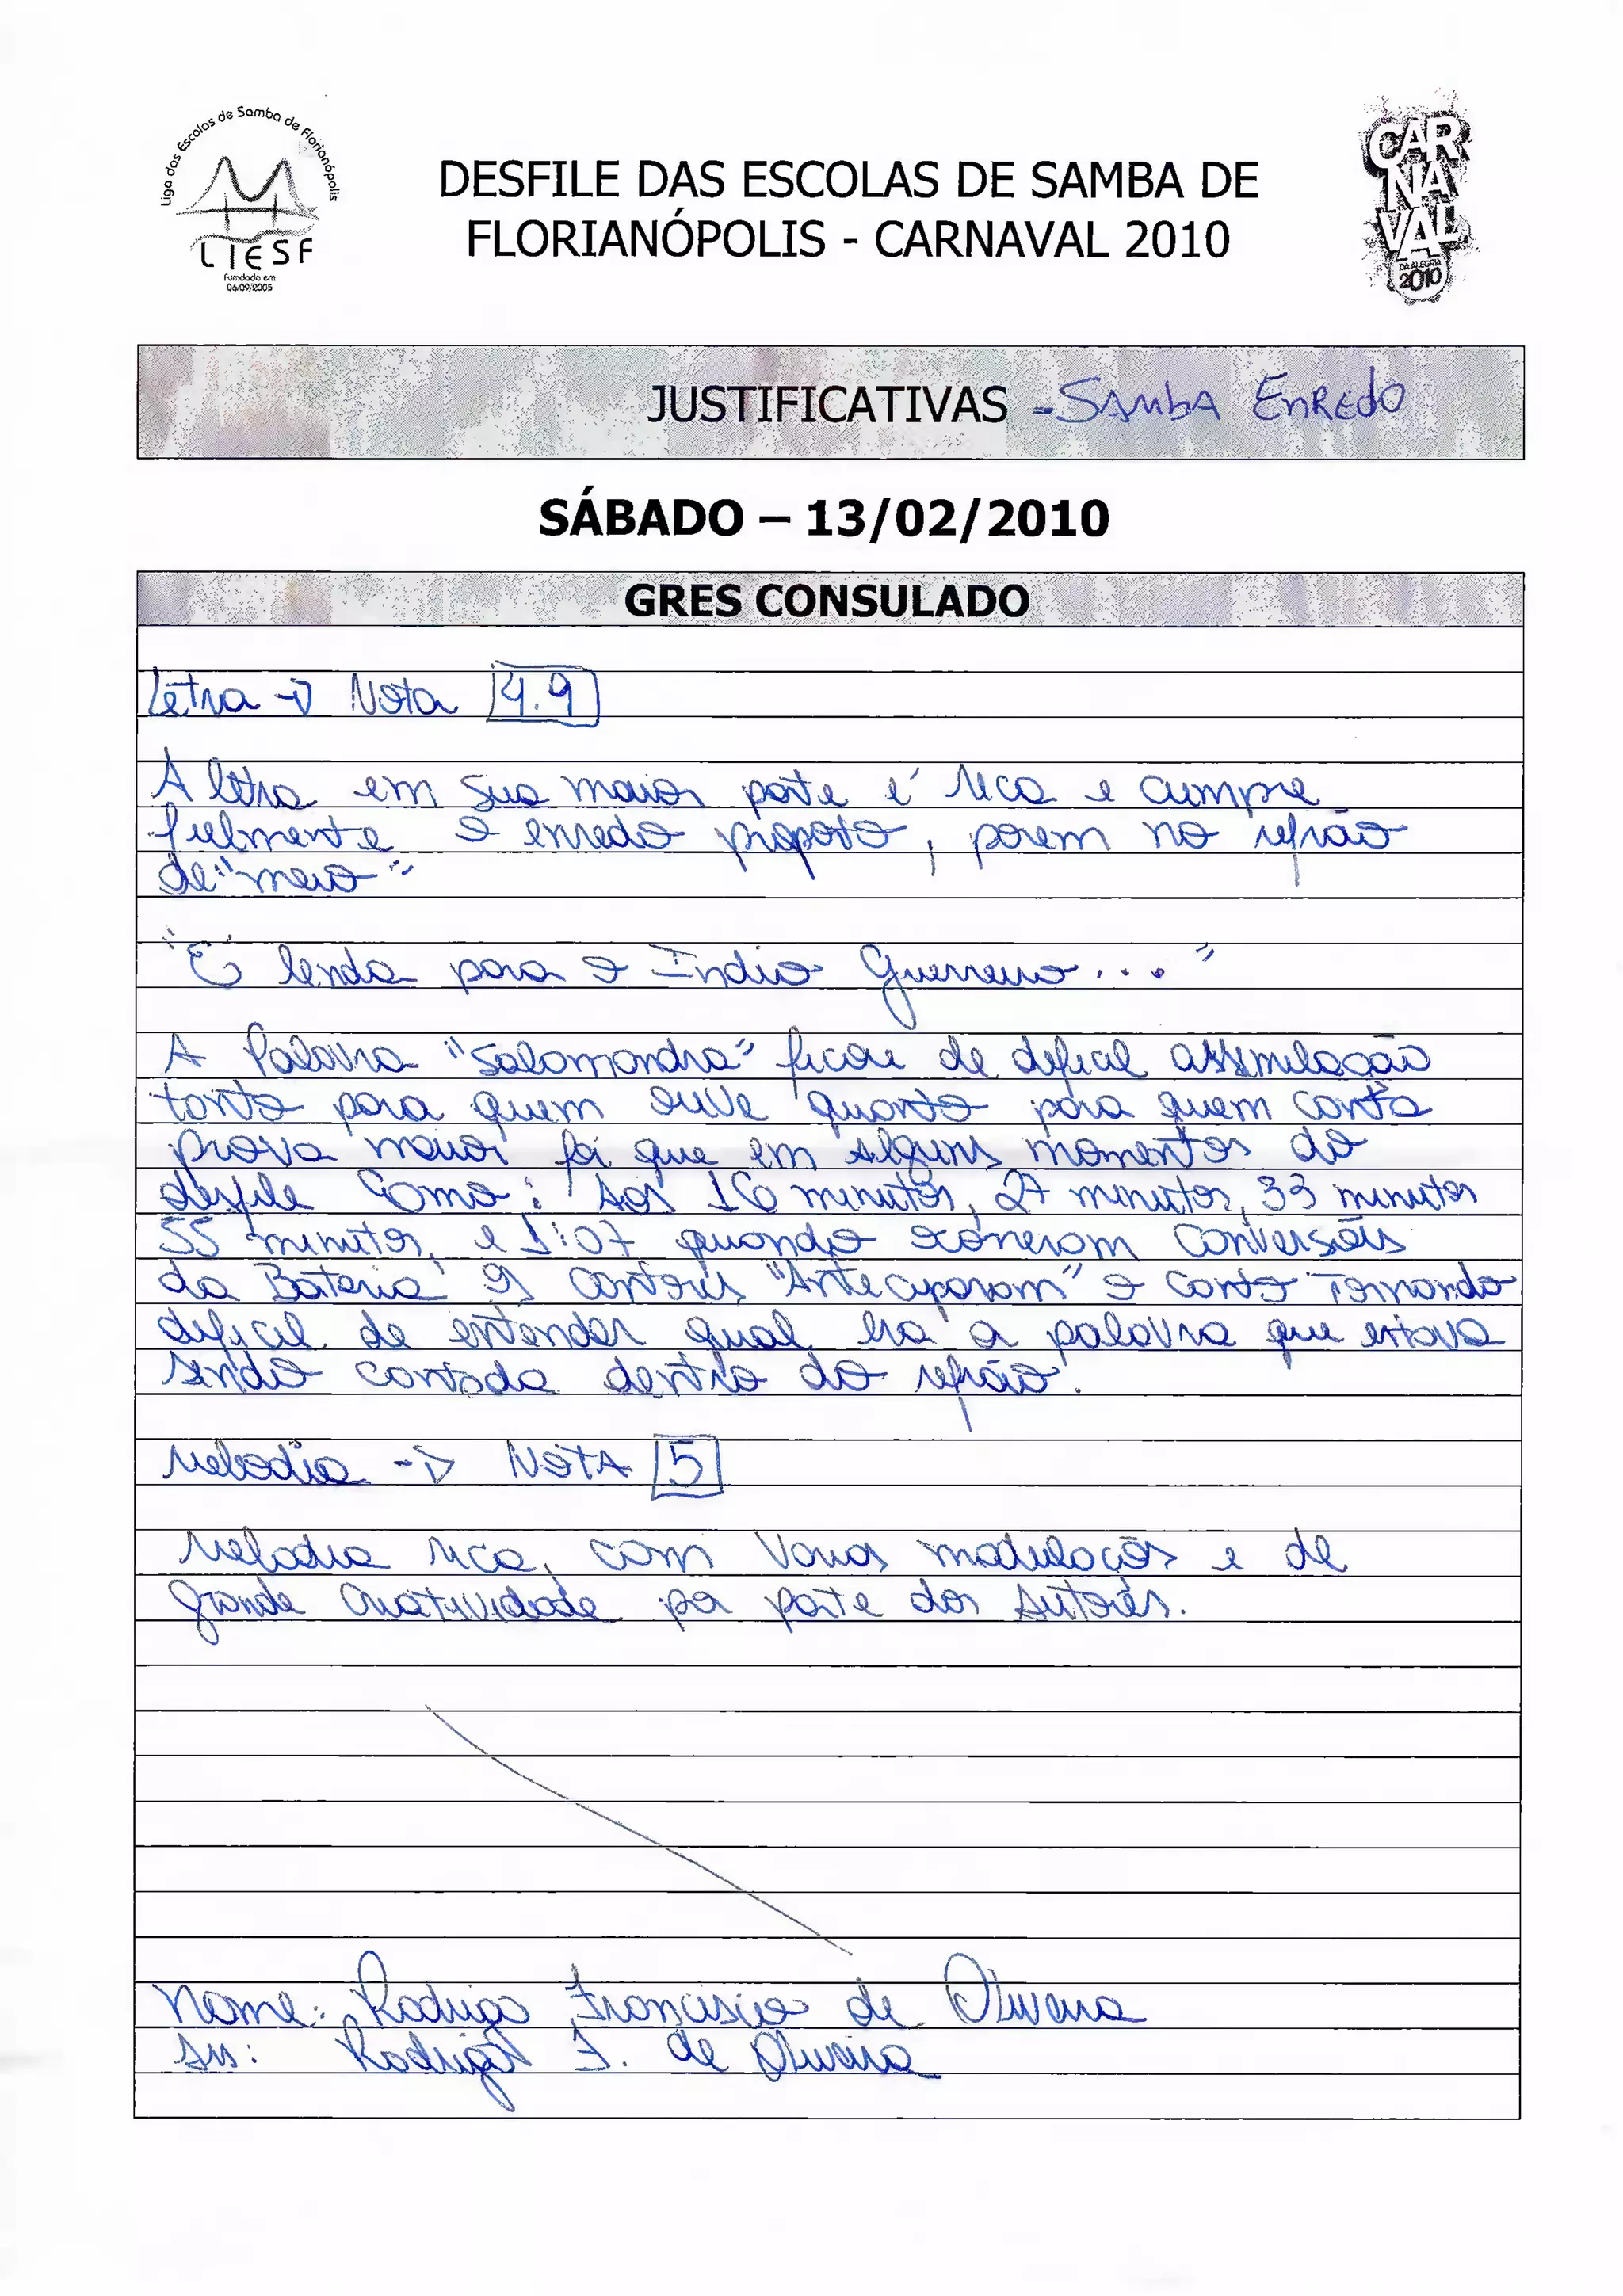 Liga das Escolas de Samba de Florianópolis
LIESF
Fumdada em
06/09/2005
DESFILE DAS ESCOLAS DE SAMBA DE
FLORIANÓPOLIS - CARNAVAL 2010
CAR
NA
VAL
DA ALEGRIA
2010
JUSTIFICATIVAS - SAMbA EnREdO
SÁBADO – 13/02/2010
GRES CONSULADO
Letra -> Nota 4.9
A letra em sua maior parte é rica e cumpre
fielmente o enredo proposto, porem no refrão
de: "meio"
"É lenda para o Índio Guerreiro..."
A Palavra "Salamandra" ficou de dificil assimilação
tanto para quem ouve quanto para quem canta
prova maior foi que em alguns momentos do
desfile como: Aos 16 minutos, 27 minutos, 33 minutos
55 minutos, e 1:07 quando ocorreram conversões
da Bateria os cantores "Antecuparam" o canto Tornando
dificil de entender qual era a palavra que estava
sendo cantada dentro do refrão.
Melodia -> NotA 5
Melodia rica, com varias modulações e de
grande criatividade por parte dos Autores.
Nome: Rodrigo Francisco de Oliveira
Ass: Rodrigo F. de Oliveira